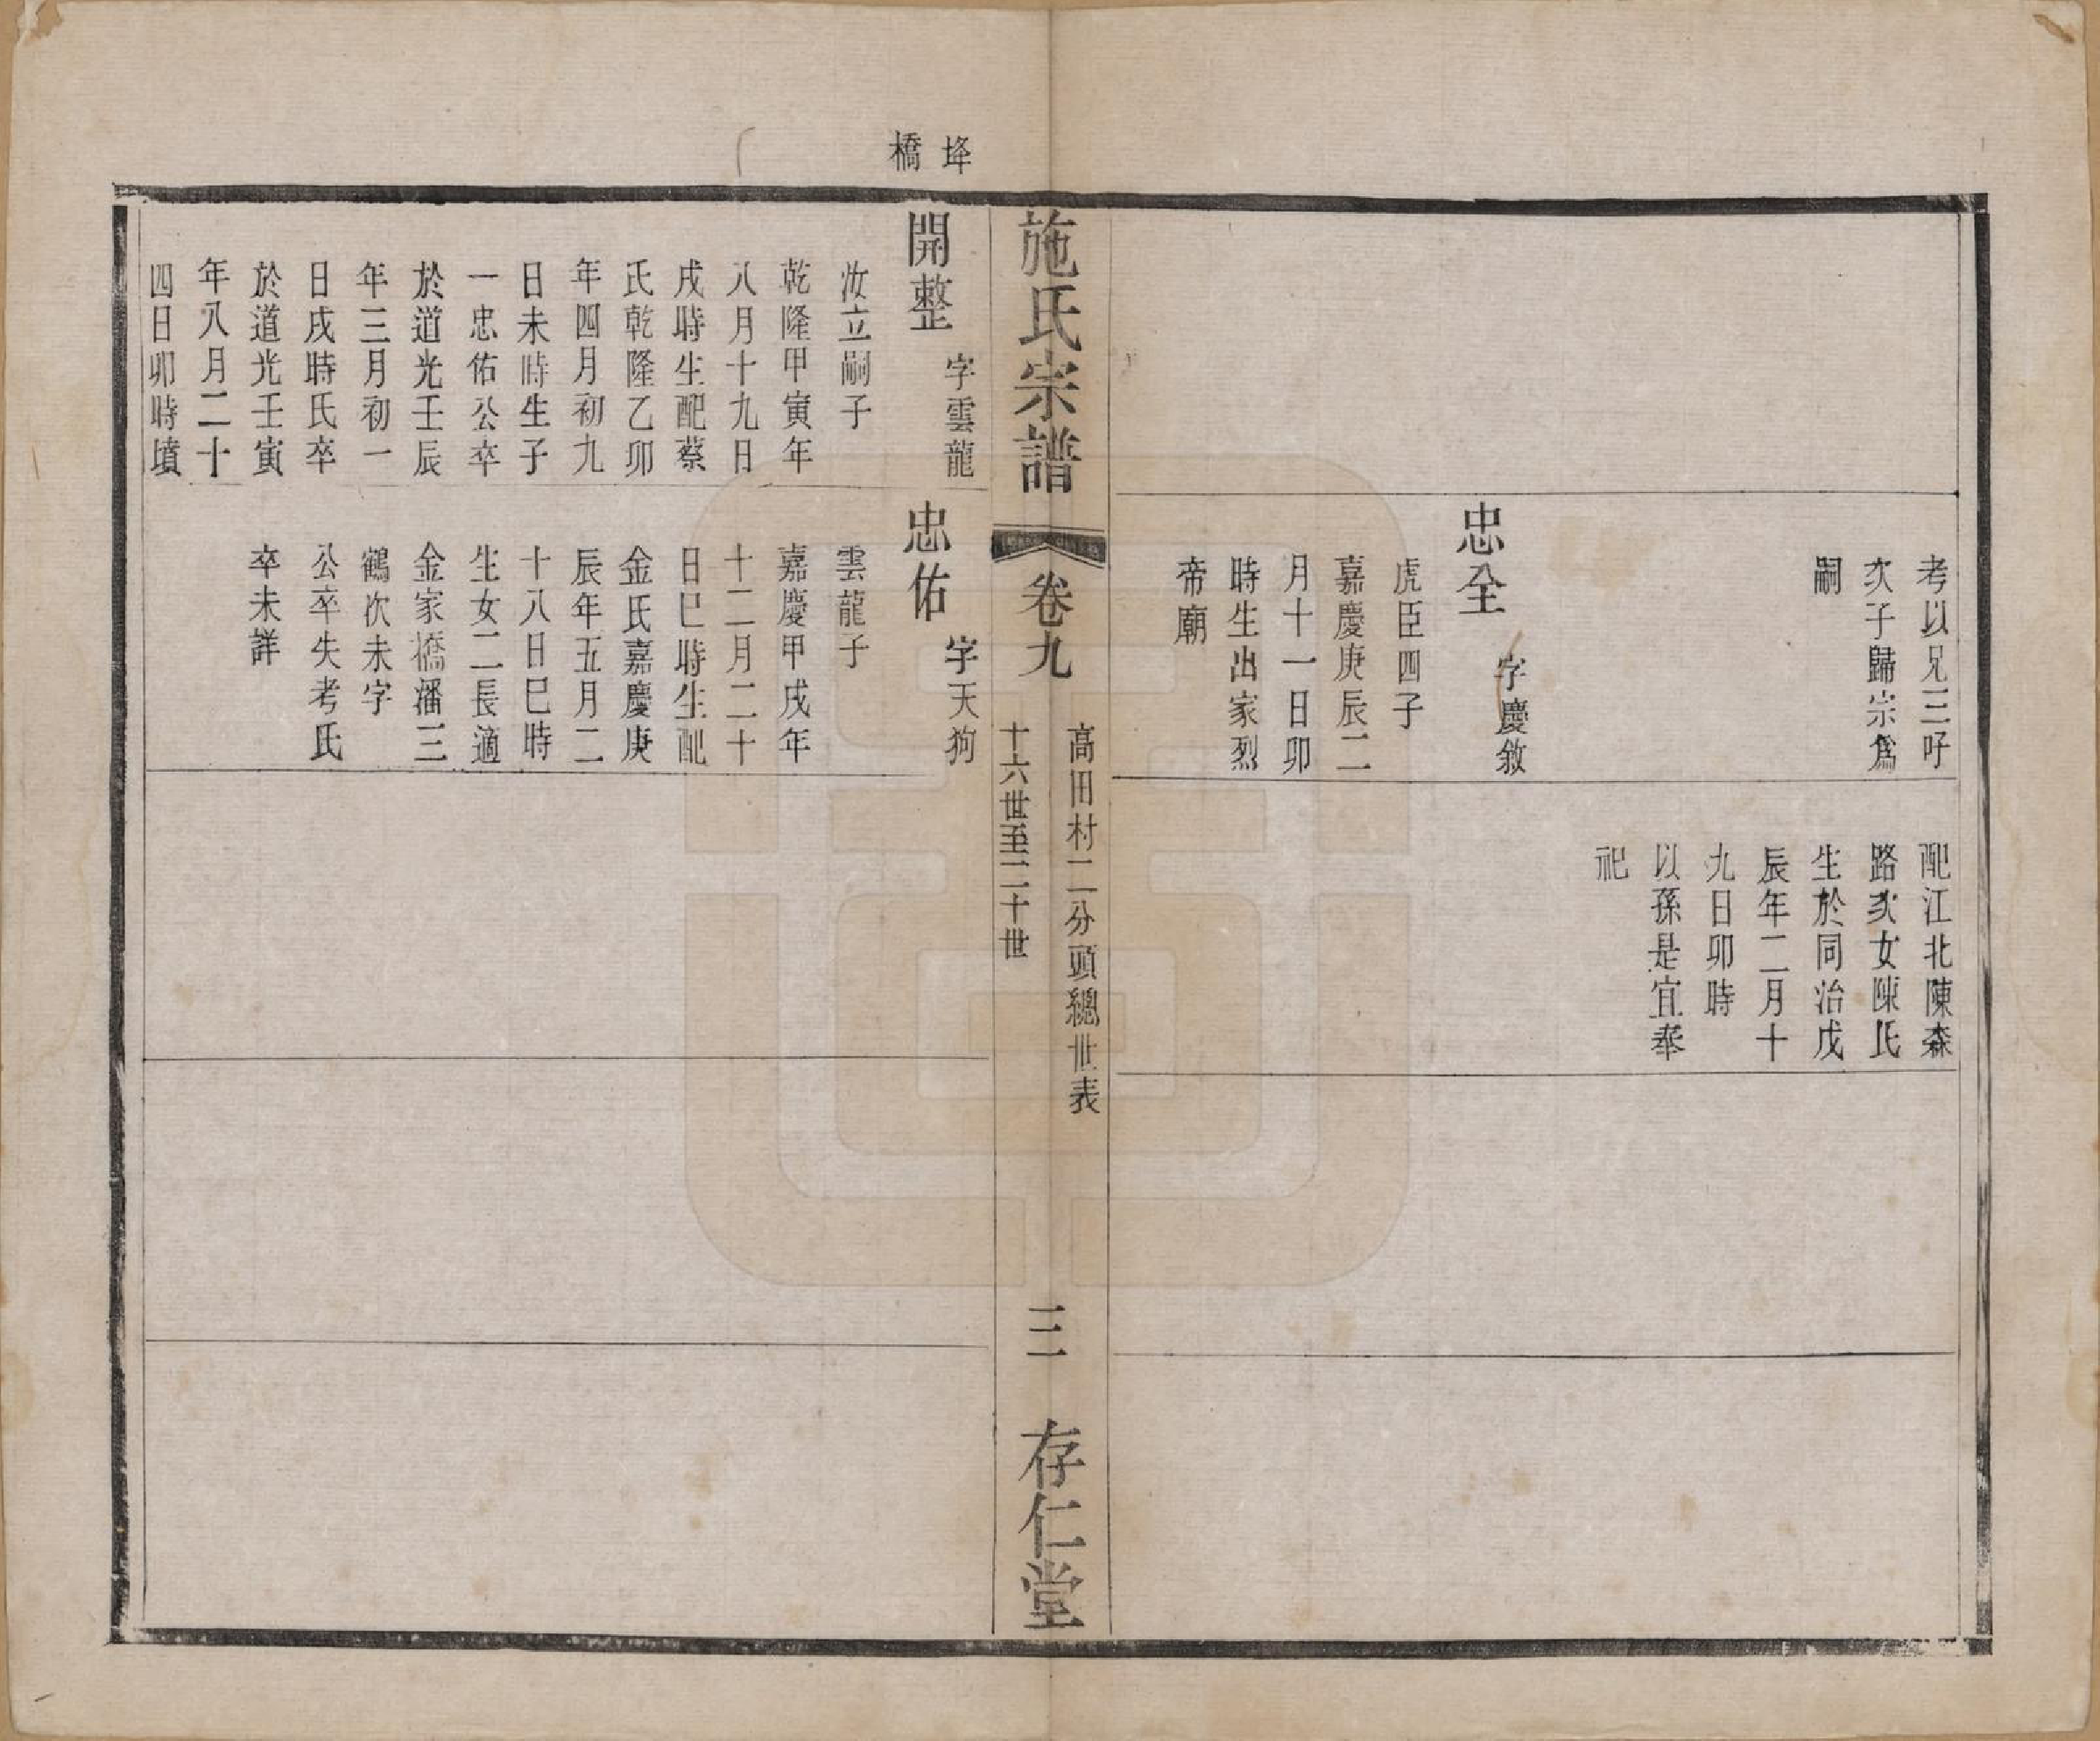 考以兄三吁
次子歸宗爲
嗣
忠全
字慶敘
虎臣四子
嘉慶庚辰二
月十一日卯
時生出家烈
帝廟
配江北陳森
路次女陳氏
生於同治戊
辰年二月十
九日卯時
以孫是宜奉
祀
施氏宗譜
卷九
高田村二分頭總世表
十六世至二十世
三
存仁堂
垶橋
開整
字雲龍
汝立嗣子
乾隆甲寅年
八月十九日
戌時生配蔡
氏乾隆乙卯
年四月初九
日未時生子
一忠佑公卒
於道光壬辰
年三月初一
日戌時氏卒
於道光壬寅
年八月二十
四日卯時墳
忠佑
字天狗
雲龍子
嘉慶甲戌年
十二月二十
日巳時生配
金氏嘉慶庚
辰年五月二
十八日巳時
生女二長適
金家橋潘三
鶴次未字
公卒失考氏
卒未詳